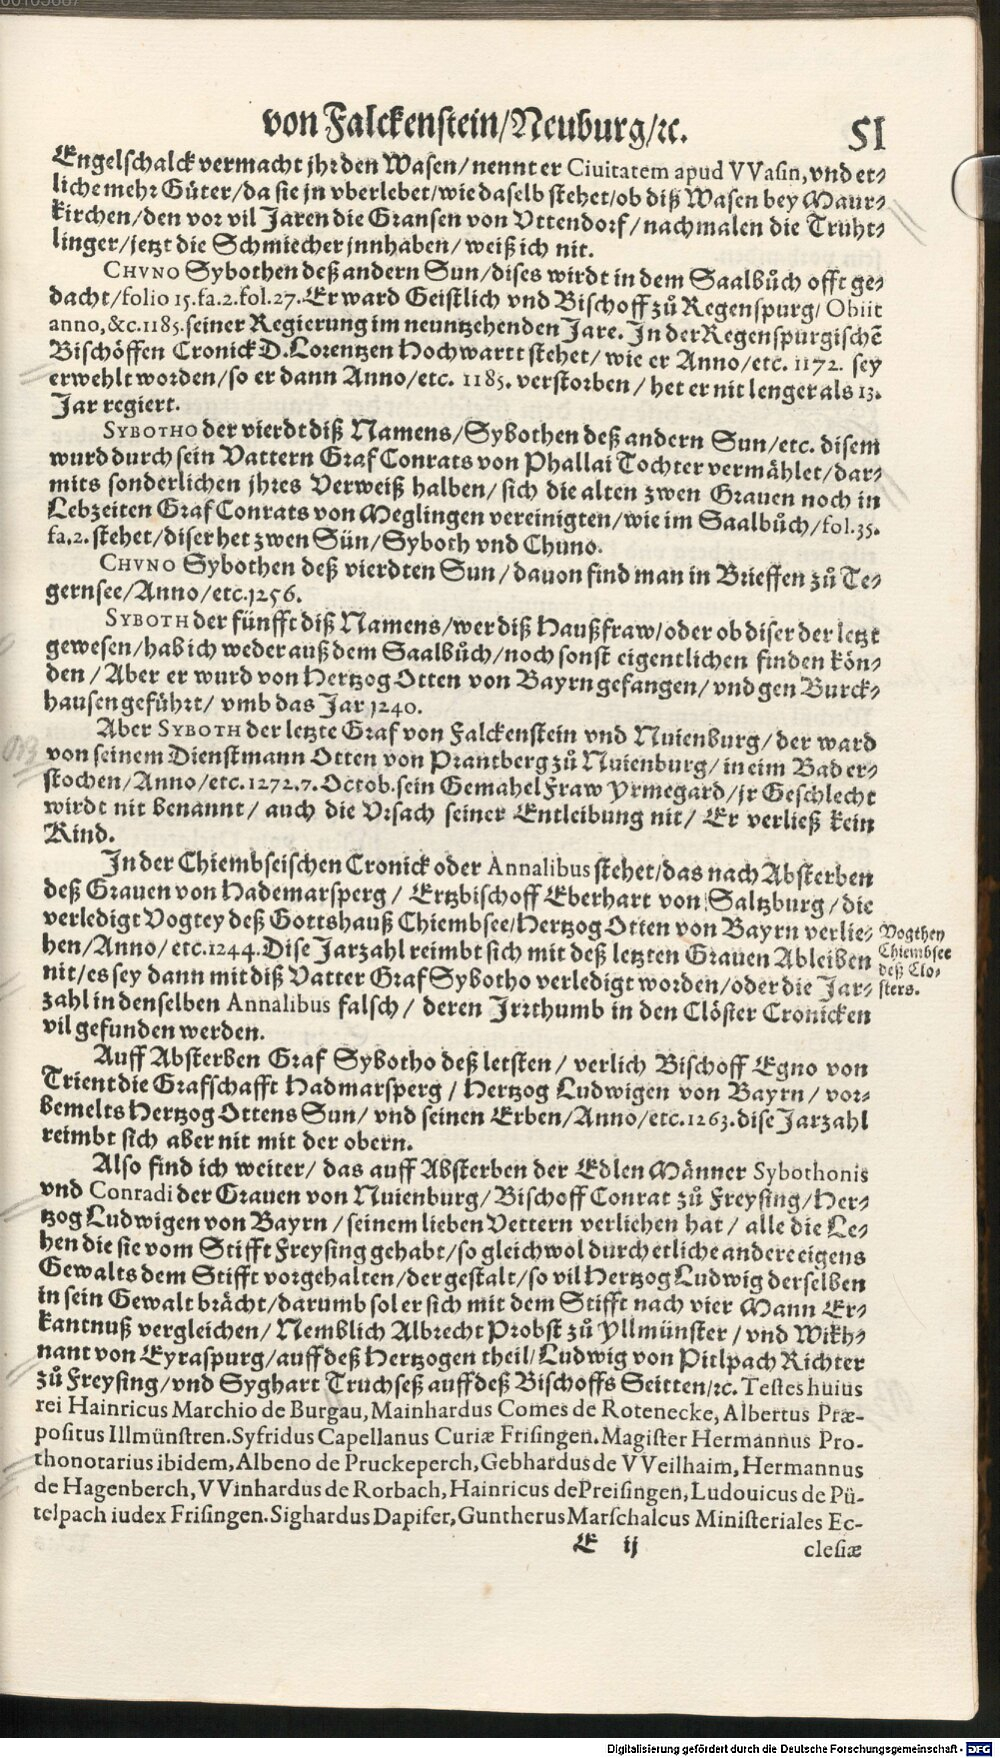 von Falckenstein/Neuburg/ꝛc. 51
Engelschalck vermacht jhr den Wasen/ nennt er Ciuitatem apud VVasin, vnd et-
liche mehr Güter/ da sie jn vberlebet/ wie daselb stehet/ ob diß Wasen bey Maur-
kirchen/ den vor vil Jaren die Gransen von Vttendorf/ nachmalen die Truht-
linger/ jetzt die Schmiecher jnnhaben/ weiß ich nit.
CHVNO Sybothen deß andern Sun/ dises wirdt in dem Saalbůch offt ge-
dacht/ folio 15. fa.2. fol.27. Er ward Geistlich vnd Bischoff zů Regenspurg/ Obiit
anno, &c. 1185. seiner Regierung im neuntzehenden Jare. In der Regenspurgischē
Bischöffen Cronick D. Lorentzen Hochwartt stehet/ wie er Anno/ etc. 1172. sey
erwehlt worden/ so er dann Anno/ etc. 1185. verstorben/ het er nit lenger als 13.
Jar regiert.
SYBOTHO der vierdt diß Namens/ Sybothen deß andern Sun/ etc. disem
wurd durch sein Vattern Graf Conrats von Phallai Tochter vermählet/ dar-
mits sonderlichen jhres Verweiß halben/ sich die alten zwen Grauen noch in
Lebzeiten Graf Conrats von Meglingen vereinigten/ wie im Saalbůch/ fol. 35.
fa.2. stehet/ diser het zwen Sün/ Syboth vnd Chuno.
CHVNO Sybothen deß vierdten Sun/ dauon find man in Brieffen zů Te-
gernsee/ Anno/ etc. 1256.
SYBOTH der fünfft diß Namens/ wer diß Haußfraw/ oder ob diser der letzt
gewesen/ hab ich weder auß dem Saalbůch/ noch sonst eigentlichen finden kön-
den/ Aber er wurd von Hertzog Otten von Bayrn gefangen/ vnd gen Burck-
hausen geführt/ vmb das Jar 1240.
Aber SYBOTH der letzte Graf von Falckenstein vnd Nuienburg/ der ward
von seinem Dienstmann Otten von Prantberg zů Nuienburg/ in eim Bad er-
stochen/ Anno/ etc. 1272. 7. Octob. sein Gemahel Fraw Yrmegard/ jr Geschlecht
wirdt nit benannt/ auch die Vrsach seiner Entleibung nit/ Er verließ kein
Kind.
In der Chiembseischen Cronick oder Annalibus stehet/ das nach Absterben
deß Grauen von Hademarsperg/ Ertzbischoff Eberhart von Saltzburg/ die
verledigt Vogtey deß Gottshauß Chiembsee/ Hertzog Otten von Bayrn verlie-
hen/ Anno/ etc. 1244. Dise Jarzahl reimbt sich mit deß letzten Grauen Ableiben
nit/ es sey dann mit diß Vatter Graf Sybotho verledigt worden/ oder die Jar-
zahl in denselben Annalibus falsch/ deren Jrrthumb in den Clöster Cronicken
vil gefunden werden.
Vogthey
Chiembsee
deß Clo-
sters.
Auff Absterben Graf Sybotho deß letsten/ verlich Bischoff Egno von
Trient die Grafschafft Hadmarsperg/ Hertzog Ludwigen von Bayrn/ vor-
bemelts Hertzog Ottens Sun/ vnd seinen Erben/ Anno/ etc. 1263. dise Jarzahl
reimbt sich aber nit mit der obern.
Also find ich weiter/ das auff Absterben der Edlen Männer Sybothonis
vnd Conradi der Grauen von Nuienburg/ Bischoff Conrat zů Freysing/ Her-
tzog Ludwigen von Bayrn/ seinem lieben Vettern verliehen hat/ alle die Le-
hen die sie vom Stifft Freysing gehabt/ so gleichwol durch etliche andere eigens
Gewalts dem Stifft vorgehalten/ der gestalt/ so vil Hertzog Ludwig derselben
in sein Gewalt brächt/ darumb sol er sich mit dem Stifft nach vier Mann Er-
kantnuß vergleichen/ Nemblich Albrecht Probst zů Yllmünster/ vnd Wikh-
nant von Eyraspurg/ auff deß Hertzogen theil/ Ludwig von Pitlpach Richter
zů Freysing/ vnd Syghart Truchseß auff deß Bischoffs Seitten/ ꝛc. Testes huius
rei Hainricus Marchio de Burgau, Mainhardus Comes de Rotenecke, Albertus Præ-
positus Illmünstren. Syfridus Capellanus Curiæ Frisingen. Magister Hermannus Pro-
thonotarius ibidem, Albeno de Pruckeperch, Gebhardus de VVeilhaim, Hermannus
de Hagenberch, VVinhardus de Rorbach, Hainricus de Preisingen, Ludouicus de Pü-
telpach iudex Frisingen. Sighardus Dapifer, Guntherus Marschalcus Ministeriales Ec-
E ij clesiæ
Digitalisierung gefördert durch die Deutsche Forschungsgemeinschaft - DFG